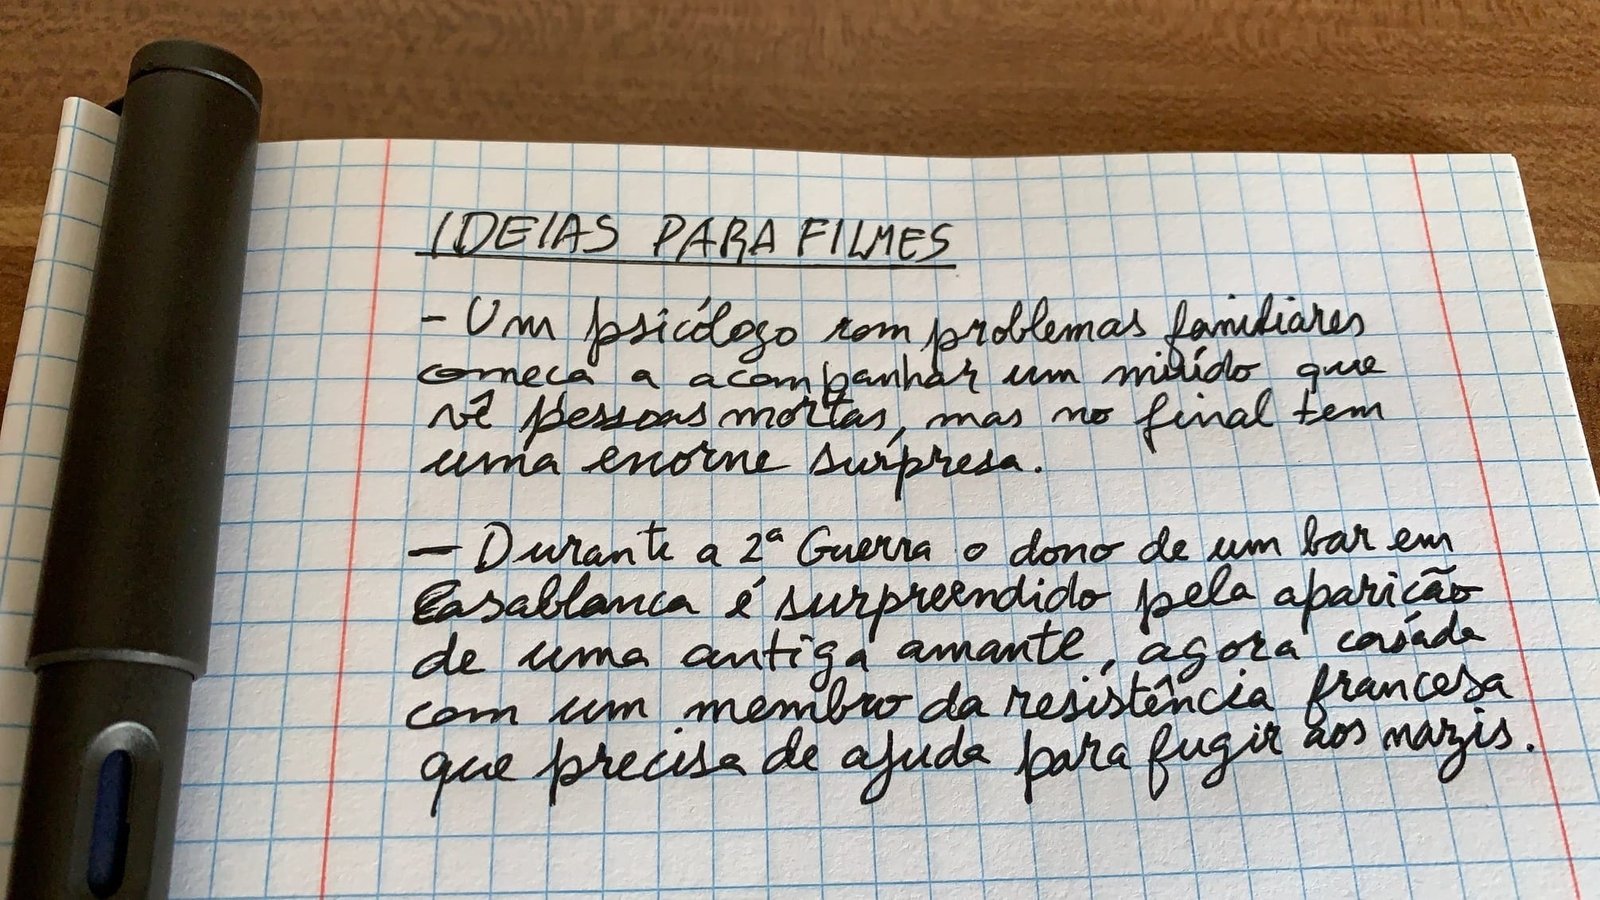 IDEIAS PARA FILMES
- Um psicólogo com problemas familiares
começa a acompanhar um miúdo que
vê pessoas mortas, mas no final tem
uma enorme surpresa.
- Durante a 2ª Guerra o dono de um bar em
Casablanca é surpreendido pela aparição
de uma antiga amante, agora casada
com um membro da resistência francesa
que precisa de ajuda para fugir aos nazis.